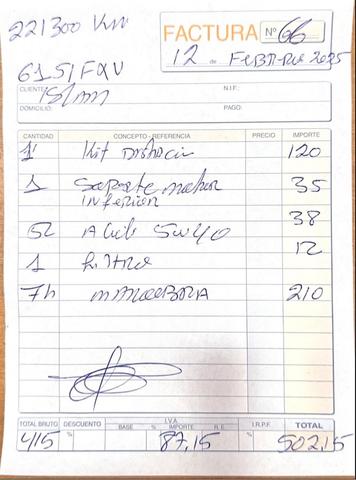 221300 Km
FACTURA Nº 66
12 de FEBRERO 2025
6151FXV
CLIENTE
N.I.F.:
DOMICILIO:
PAGO:
CANTIDAD CONCEPTO - REFERENCIA PRECIO IMPORTE
1 Kit 120
1 Soporte motor 35
inferior
5L Aceite 5W40 38
1 filtro 12
7h 210
TOTAL BRUTO DESCUENTO I.V.A. I.R.P.F. TOTAL
% BASE % IMPORTE R.E. %
415 87,15 502,15